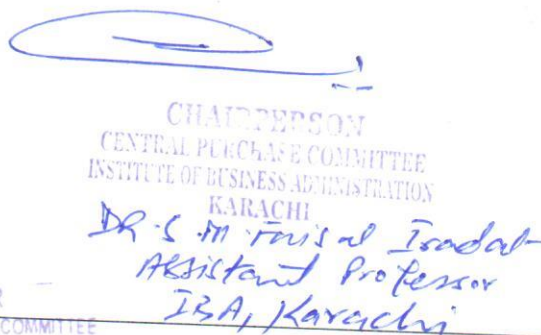 CHAIRPERSON
CENTRAL PURCHASE COMMITTEE
INSTITUTE OF BUSINESS ADMINISTRATION
KARACHI
DR. S. M. Faisal Iradat
Assistant Professor
IBA, Karachi
COMMITTEE